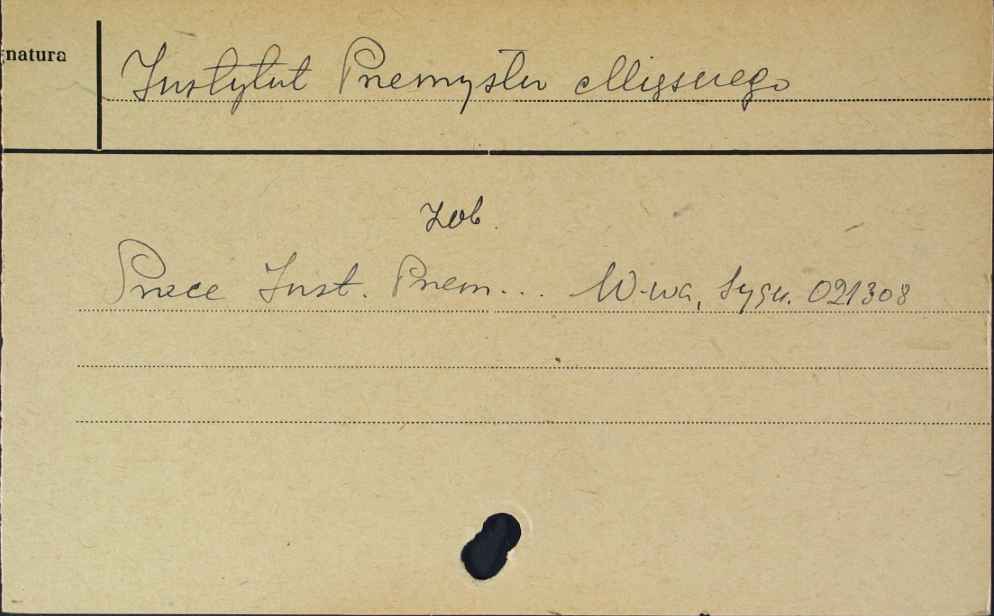 natura
Instytut Przemysłu Mięsnego
zob.
Prace Inst. Przem... W-wa, Sygn. 021308